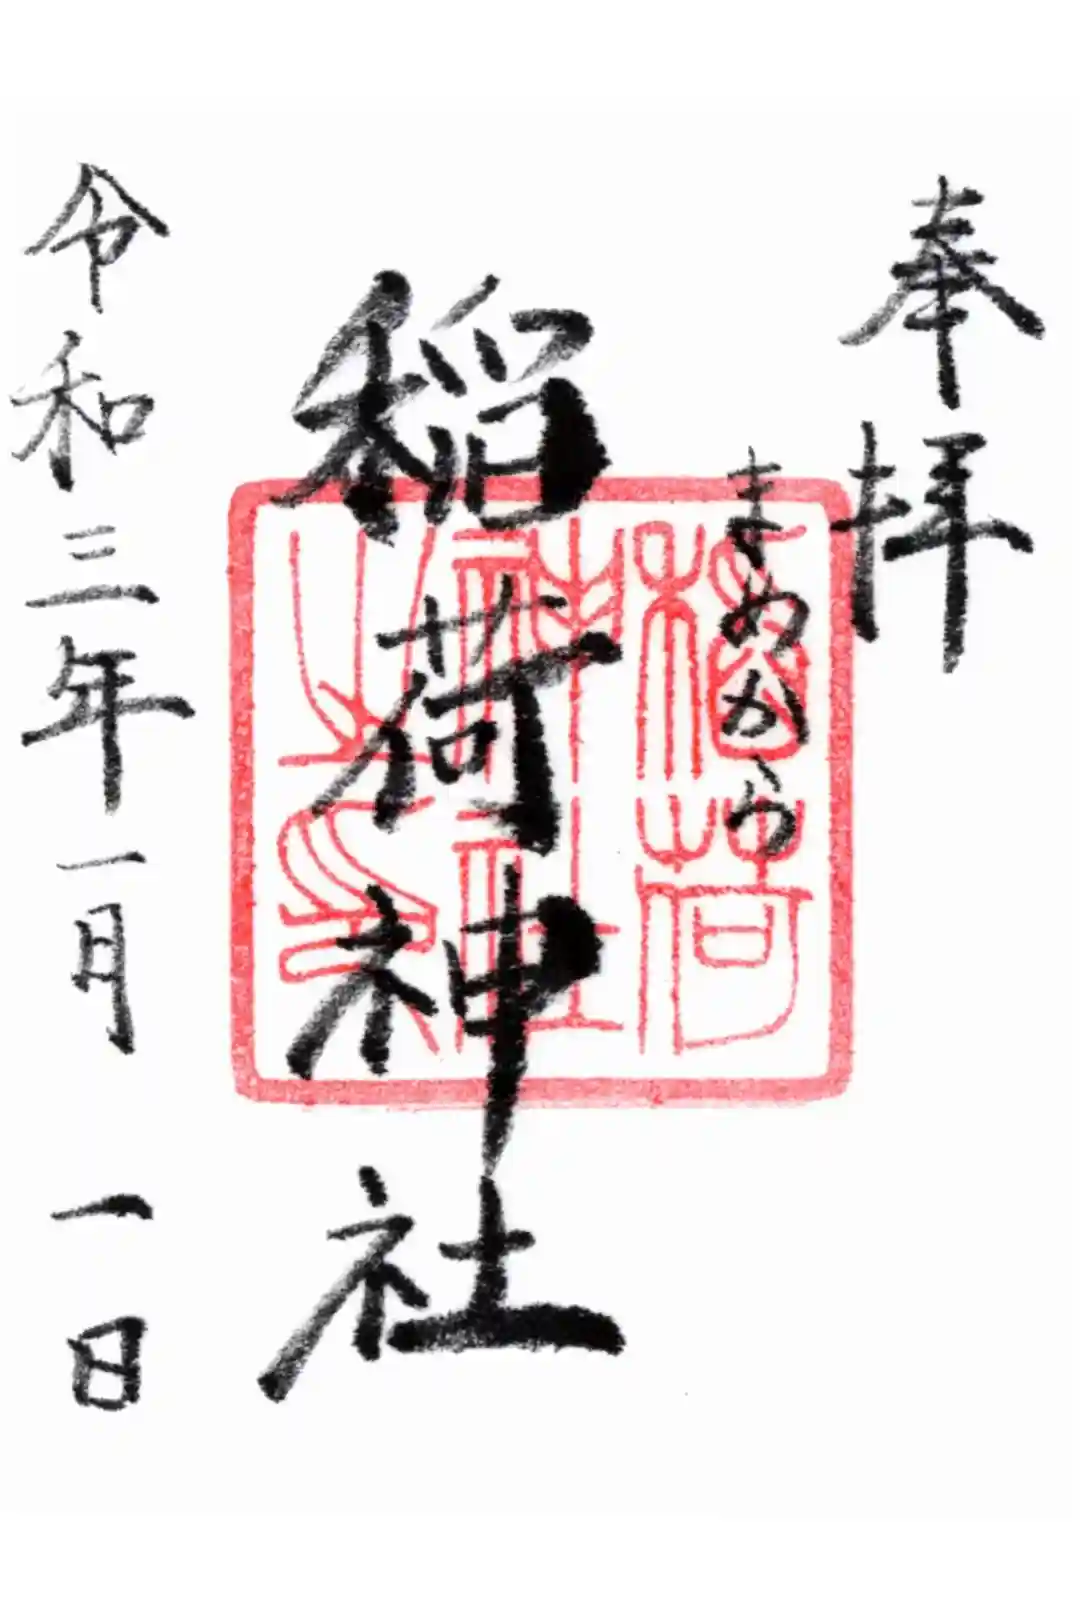 奉拝
稲荷神社
稲荷
神社
之印
令和三年一月一日